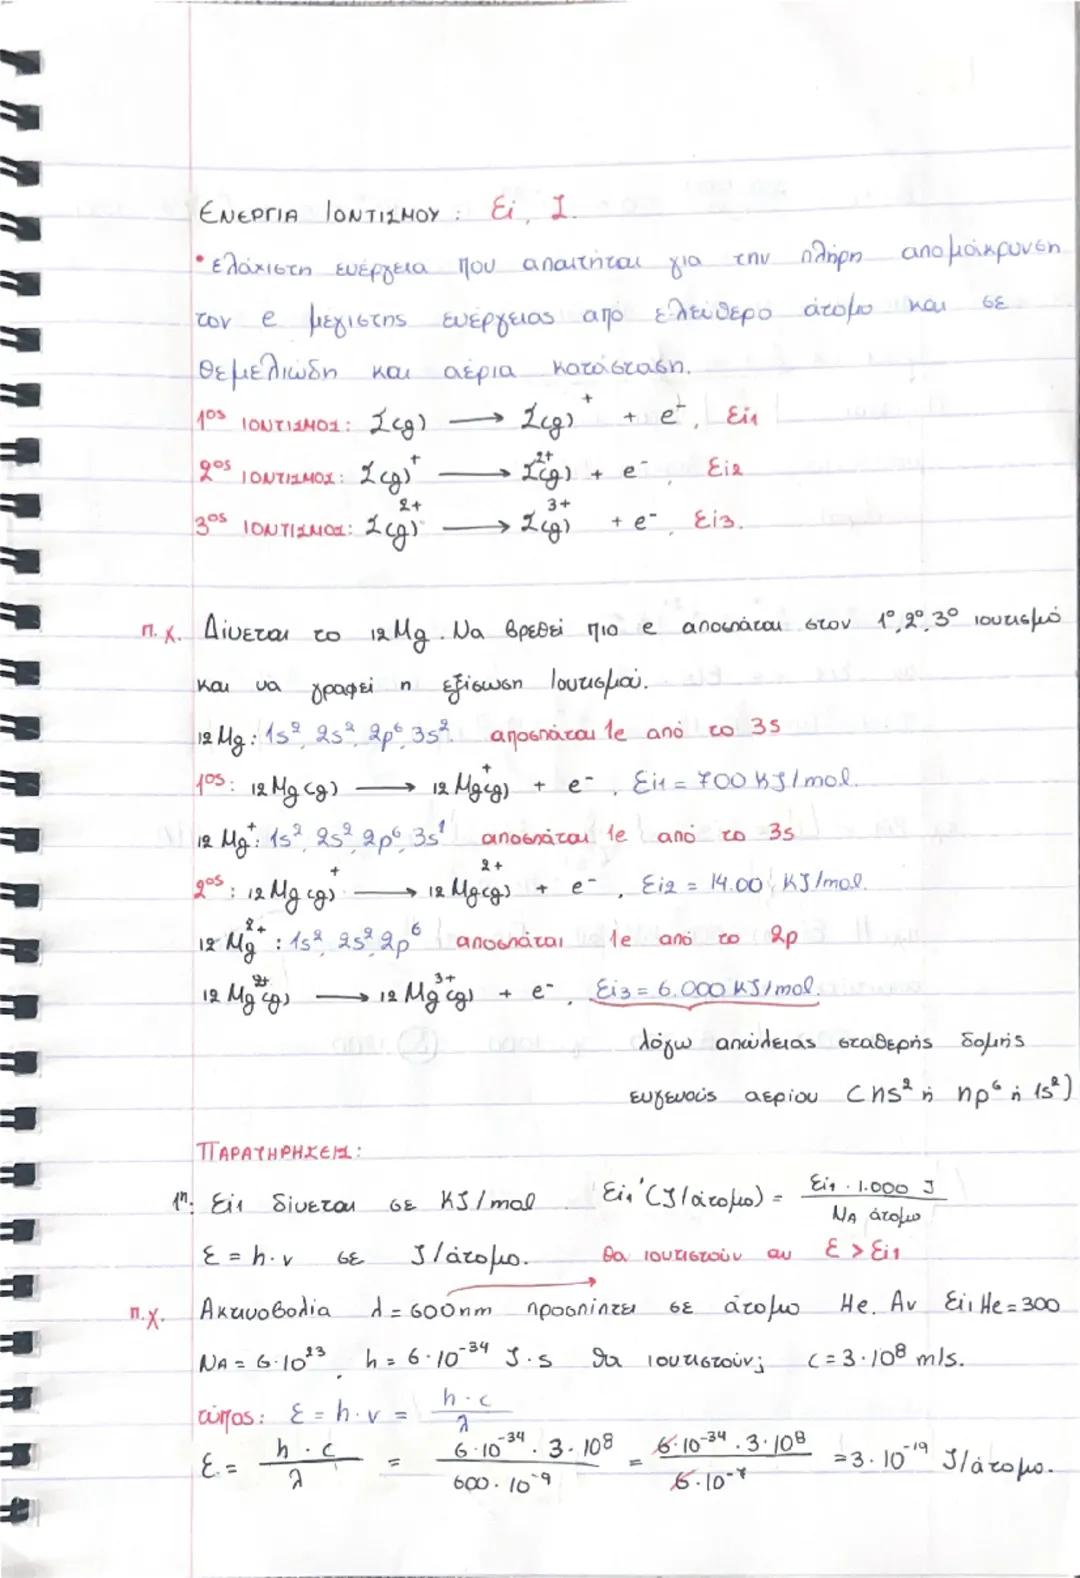 ΕΝΕΡΓΙΑ ΙΟΝΤΙΣΜΟΥ : Ei, I.
• ελάχιστη ενέργεια που απαιτήται για την πλήρη απομάκρυνση
του e μέγιστης ενέργειας από ελεύθερο άτομο και σε
θεμελιώδη και αέρια κατάσταση.
1ος ΙΟΝΤΙΣΜΟΣ: Σ(g) ⟶ Σ(g)⁺ + e⁻, Ei1
2ος ΙΟΝΤΙΣΜΟΣ: Σ(g)⁺ ⟶ Σ(g)²⁺ + e⁻, Ei2
3ος ΙΟΝΤΙΣΜΟΣ: Σ(g)²⁺ ⟶ Σ(g)³⁺ + e⁻, Ei3.
π.χ. Δίνεται το 12Mg. Να βρεθεί πιο e αποσπάται στον 1º, 2º, 3º ιοντισμό
και να γραφεί η εξίσωση ιοντισμού.
12Mg: 1s², 2s², 2p⁶, 3s². αποσπάται 1e από το 3s
1ος: 12Mg(g) ⟶ 12Mg⁺(g) + e⁻, Ei1 = 700 KJ/mol.
12Mg⁺: 1s², 2s², 2p⁶, 3s¹ αποσπάται 1e από το 3s
2ος: 12Mg(g)⁺ ⟶ 12Mg(g)²⁺ + e⁻, Ei2 = 14.00 KJ/mol.
12Mg²⁺: 1s², 2s², 2p⁶ αποσπάται 1e από το 2p
12Mg²⁺(g) ⟶ 12Mg³⁺(g) + e⁻, Ei3 = 6.000 KJ/mol.
λόγω απώλειας σταθερής δομής
ευγενούς αερίου (ns² ή np⁶ ή 1s²)
ΠΑΡΑΤΗΡΗΣΕΙΣ:
1η: Ei1 δίνεται σε KJ/mol Ei1'(J/άτομο) = Ei1 · 1.000 J / NA άτομο
E = h·v σε J/άτομο. Θα ιοντιστούν αν E > Ei1
π.χ. Ακτινοβολία λ = 600nm προσπίπτει σε άτομο He. Αν Ei1 He = 300
NA = 6·10²³, h = 6·10⁻³⁴ J·s θα ιοντιστούν; C = 3·10⁸ m/s.
τύπος: E = h·v = h·c / λ
E = h·c / λ = 6·10⁻³⁴ · 3·10⁸ / 600·10⁻⁹ = 6·10⁻³⁴ · 3·10⁸ / 6·10⁻⁷ = 3·10⁻¹⁹ J/άτομο.